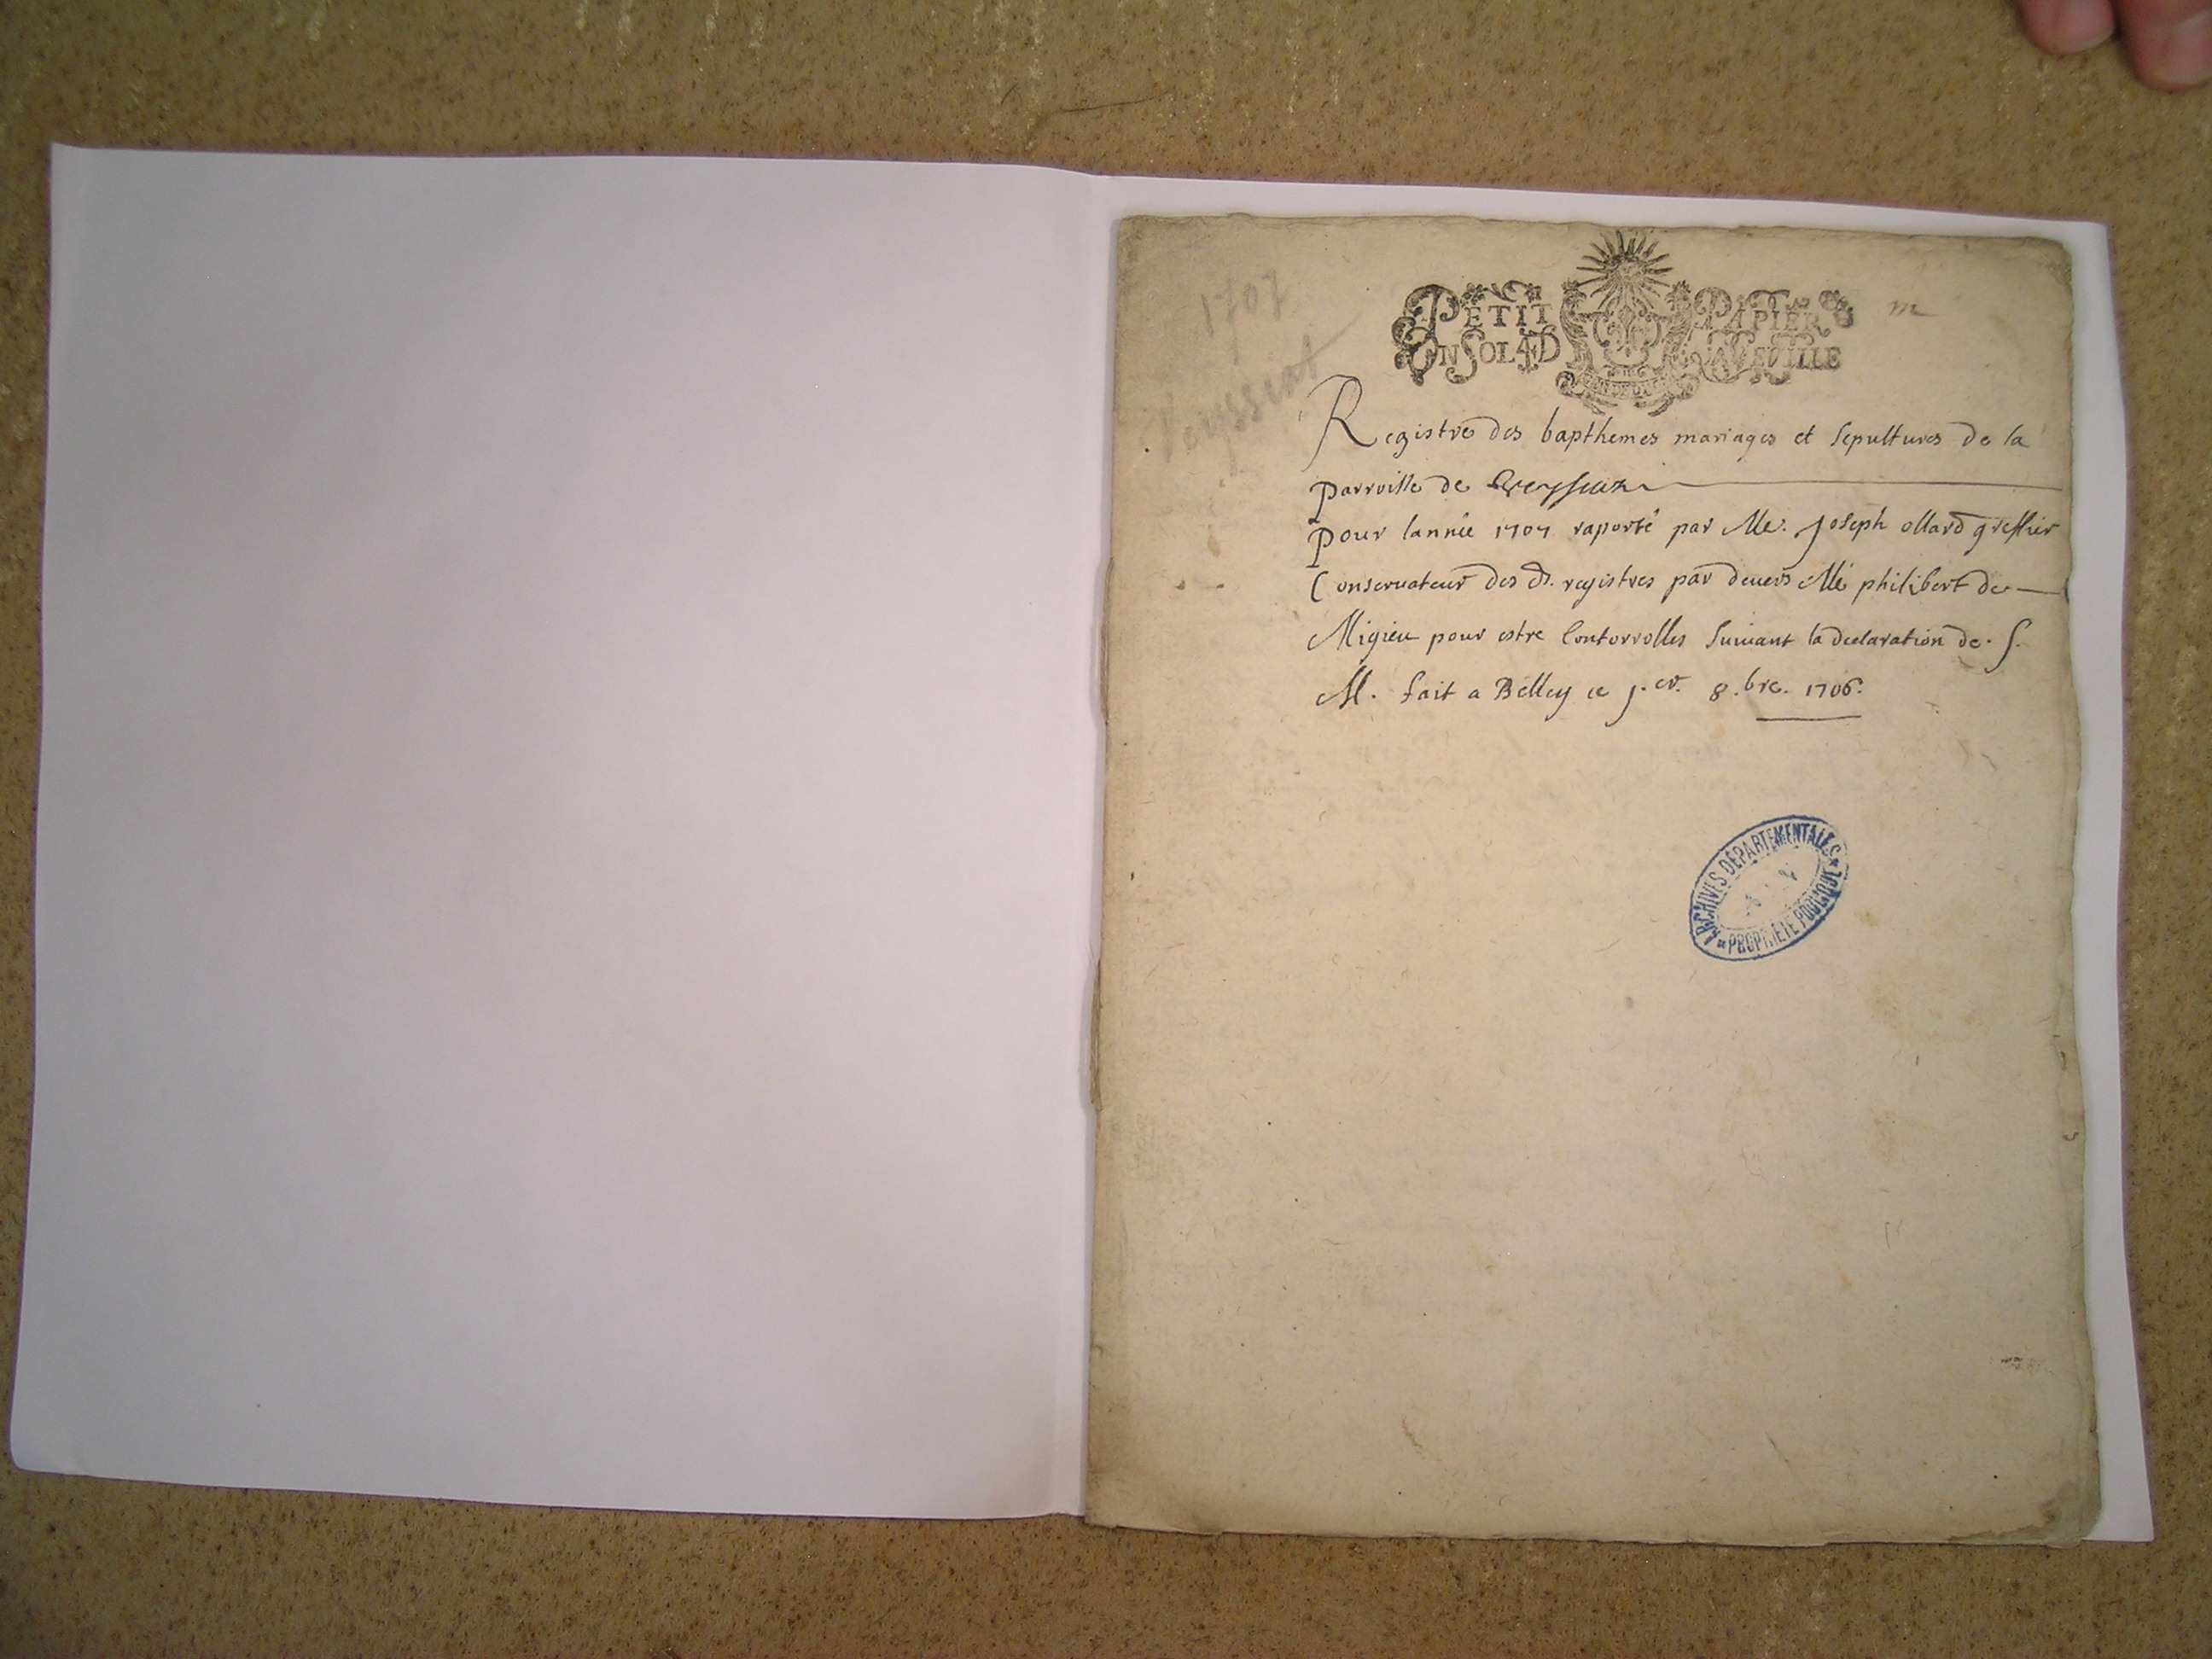 1707
PETIT PAPIER
UN SOL LA FEUILLE
m
Registre des bapthemes mariages et sepultures de la
parroisse de
pour lannée 1707 raporté par Me. Joseph ollard greffier
Conservateur des ds. registres par devers Me philibert de
Migieu pour estre Contorrolles suivant la declaration de. S.
M. fait a Belley ce j.er. 8.bre. 1706.
ARCHIVES DÉPARTEMENTALES
PROPRIÉTÉ PUBLIQUE